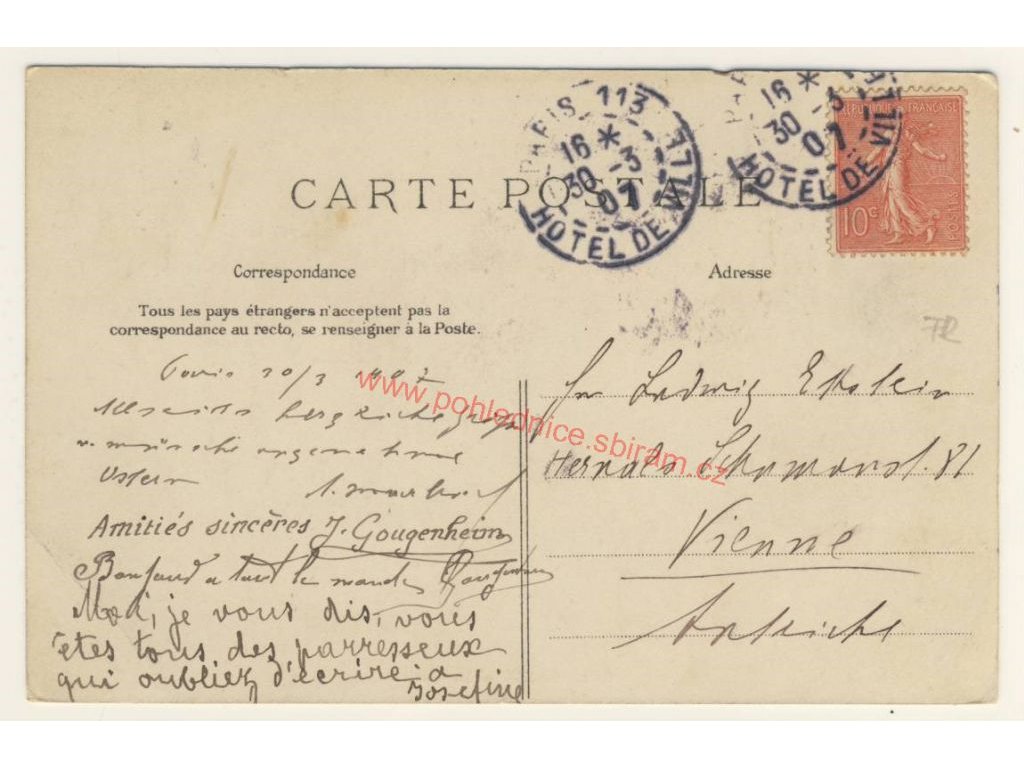 PARIS 113
16 *
30 - 3
07
HOTEL DE VILLE
16 *
30 - 3
07
HOTEL DE VILLE
REPUBLIQUE FRANÇAISE
10c
POSTES
CARTE POSTALE
Correspondance
Adresse
Tous les pays étrangers n'acceptent pas la
correspondance au recto, se renseigner à la Poste.
Paris 30/3 1907
Ostern
Amitiés sincères J. Gougenheim
a tout le monde
Moi, je vous dis, vous
êtes tous des parresseux
qui oubliez d'écrire à
Josefine
Ludwig
Hernals 81
Vienne
Autriche
www.pohlednice.sbiram.cz